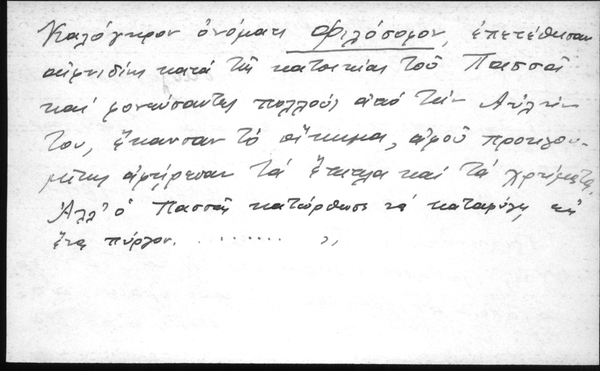 Καλόγηρον ὀνόματι Φιλόσοφον, ἐπετέθησαν
αἰφνιδίως κατά τῆς κατοικίας τοῦ Πασσᾶ
καί φονεύσαντες πολλούς ἀπό τήν Αὐλήν
του, ἔκαυσαν τό οἴκημα, ἀφοῦ προηγου-
μένως ἀφήρεσαν τά ἔπιπλα καί τά χρήματα.
Ἀλλ' ὁ Πασσᾶς κατώρθωσε νά καταφύγῃ εἰς
ἕνα πύργον. ......... ,,